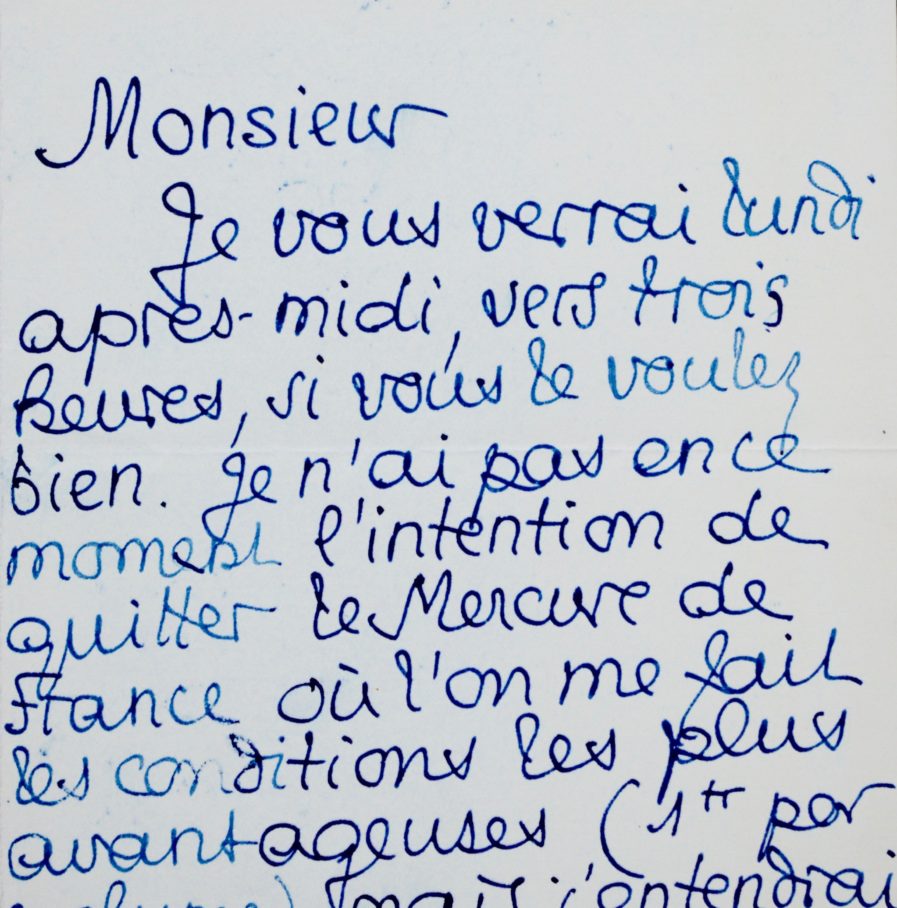 Monsieur
Je vous verrai lundi
après-midi, vers trois
heures, si vous le voulez
bien. Je n'ai pas en ce
moment l'intention de
quitter le Mercure de
France où l'on me fait
les conditions les plus
avantageuses (1fr par
mais j'entendrai